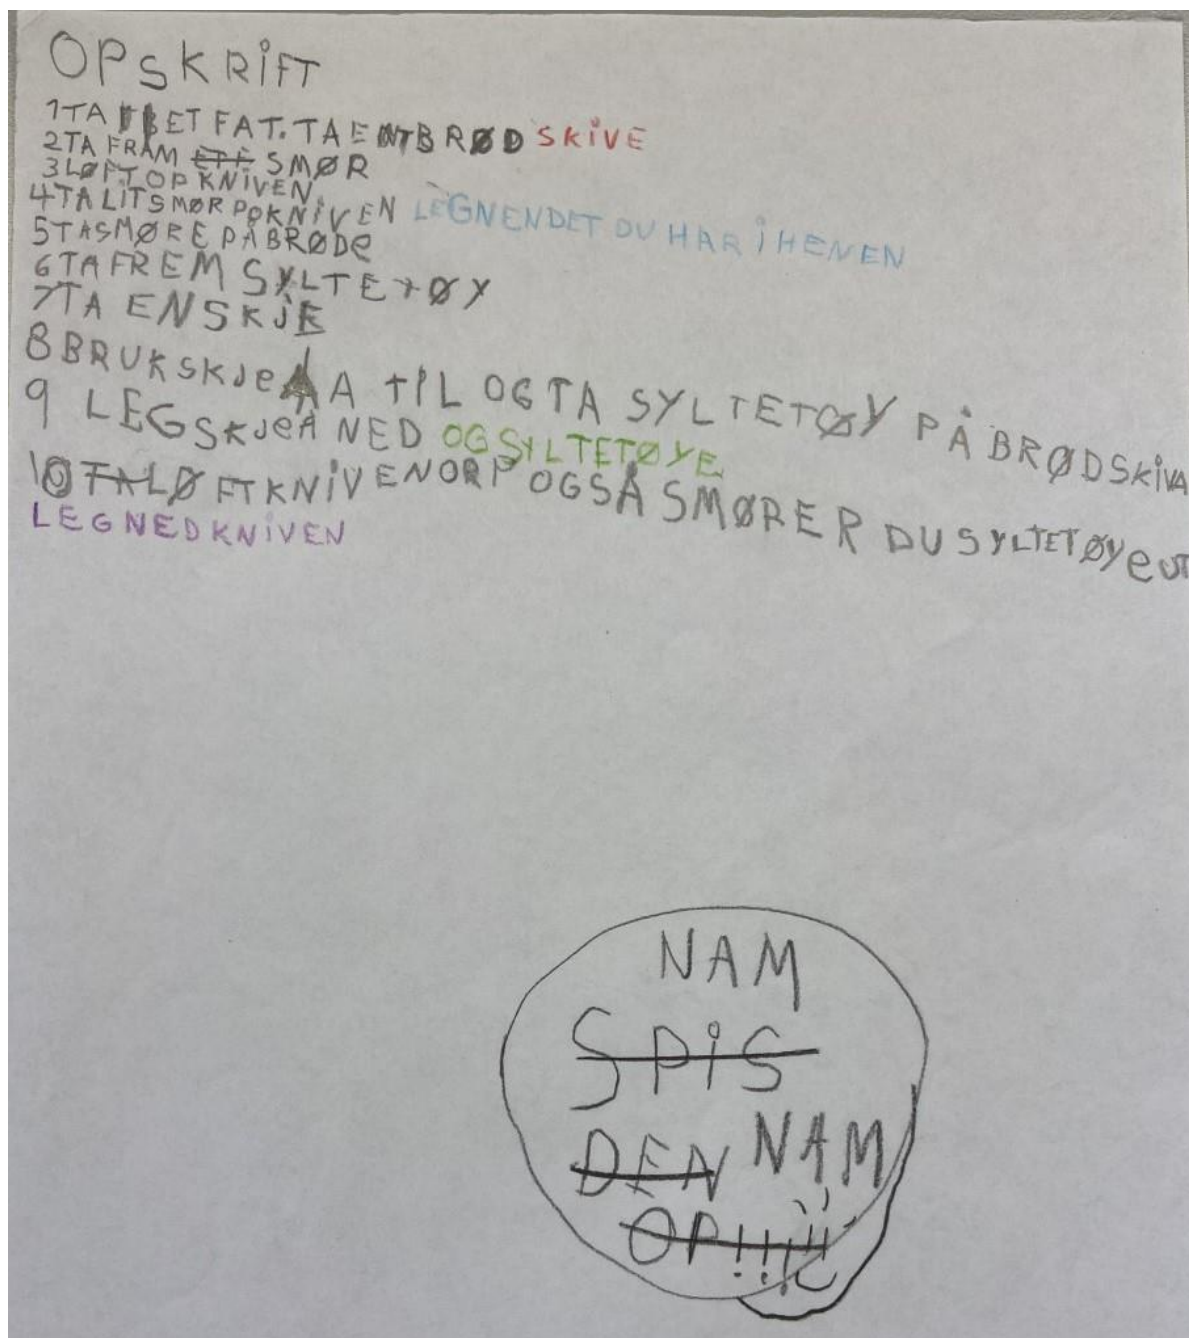 OPSKRIFT
1 TA ET FAT. TA ENT BRØD SKIVE
2 TA FRAM SMØR
3 LØFT OP KNIVEN
4 TA LIT SMØR PÅ KNIVEN LEGNENDET DU HAR I HENEN
5 TA SMØRE PÅ BRØDe
6 TA FREM SYLTETØY
7 TA EN SKJE
8 BRUK SKJeA A TIL OG TA SYLTETØY PÅ BRØDSKIVA
9 LEG SKJeA NED OG SYLTETØYE
10 LØFT KNIVEN OPP OG SÅ SMØRER DU SYLTETØYe UT
LEG NED KNIVEN
NAM
SPIS
DEN NAM
OP!!!!!